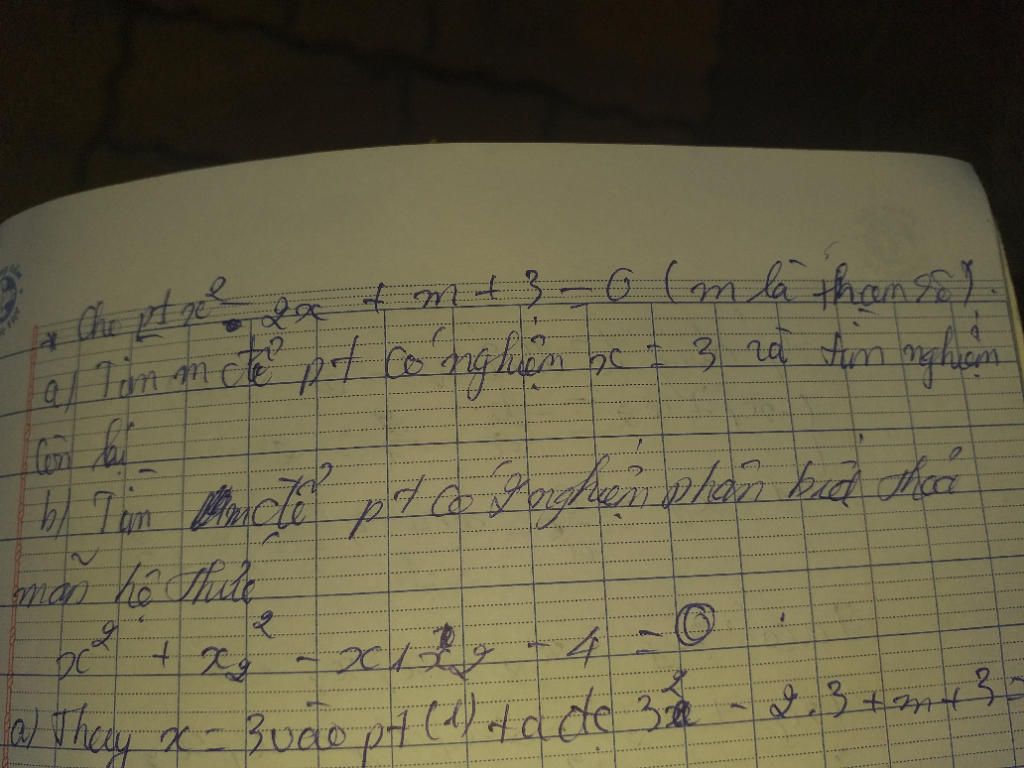 * Cho pt x² - 2x + m + 3 = 0 (m là tham số).
a) Tìm m để pt có nghiệm x = 3 và tìm nghiệm
còn lại
b) Tìm m để pt có 2 nghiệm phân biệt thoả
mãn hệ thức
x² + x₂² - x₁x₂ - 4 = 0
a) Thay x = 3 vào pt (1) ta đc 3² - 2.3 + m + 3 =